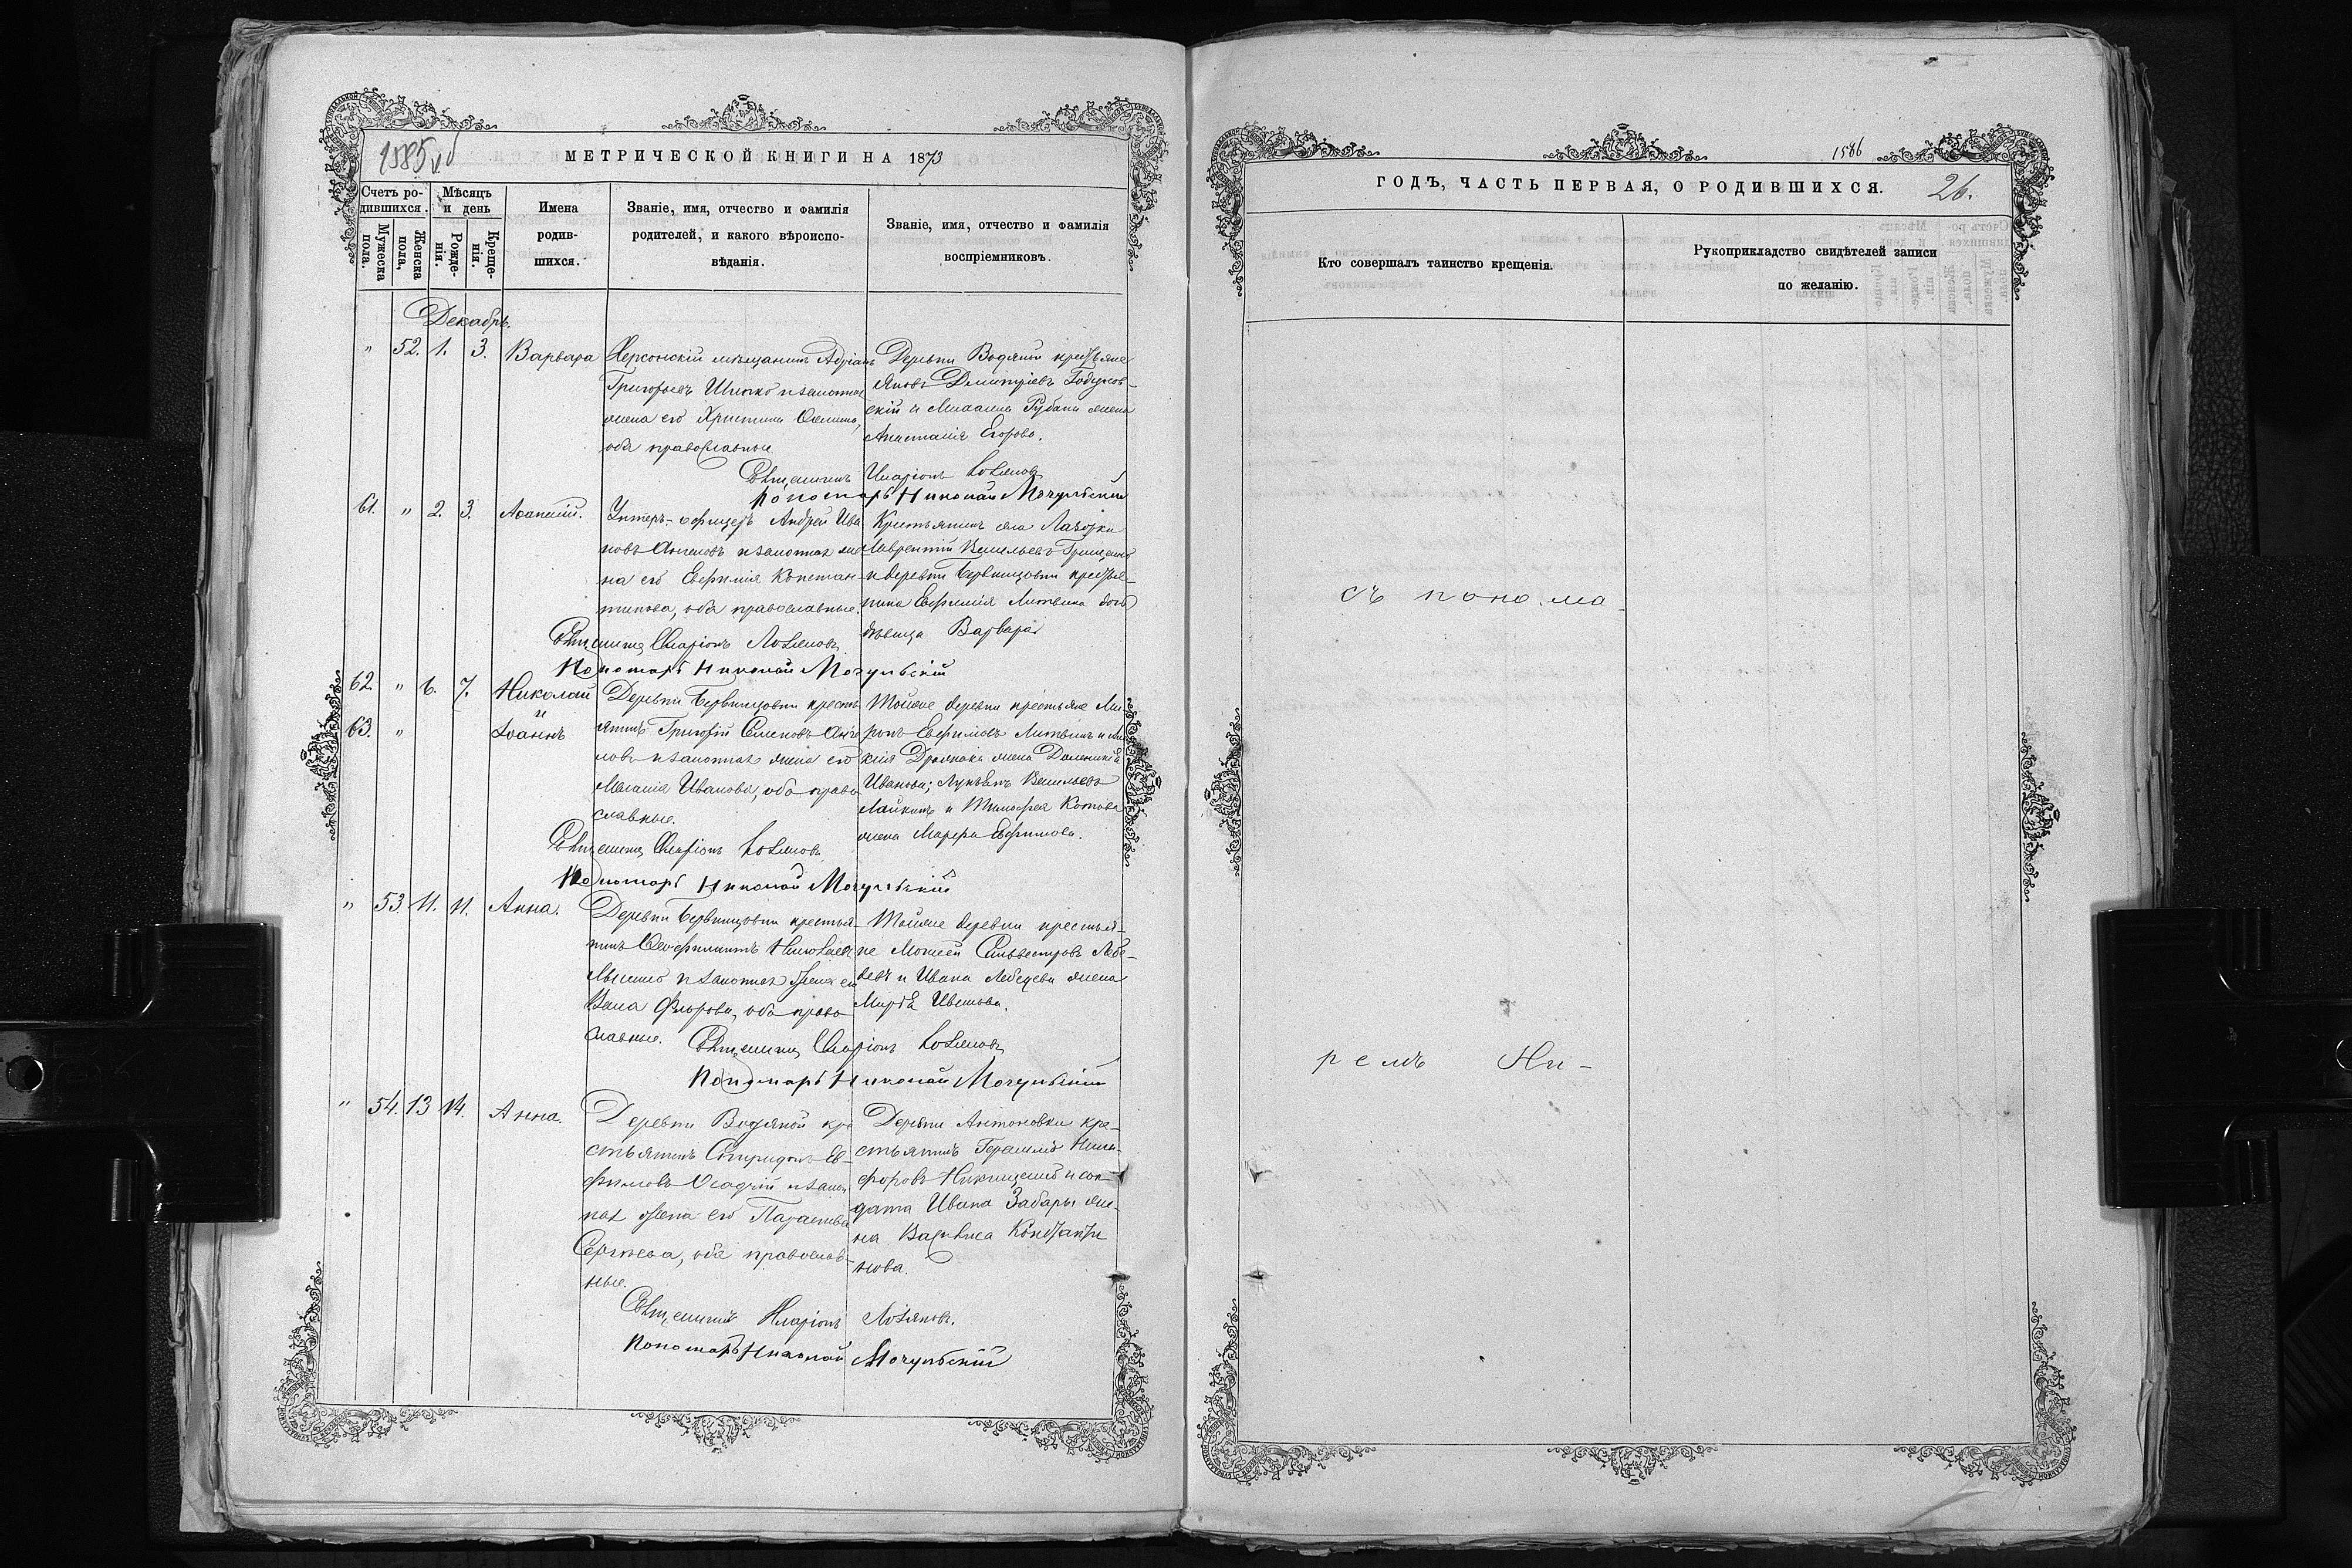 1585 об
МЕТРИЧЕСКОЙ КНИГИ НА 1873
Счетъ ро-
дившихся.
Мѣсяцъ
и день
Мужеска
пола.
Женска
пола,
Рожде-
нія.
Креще-
нія.
Имена
родив-
шихся.
Званіе, имя, отчество и фамилія
родителей, и какого вѣроиспо-
вѣданія.
Званіе, имя, отчество и фамилія
воспріемниковъ.
Декабрь.
" 52. 1. 3. Варвара
Херсонскій мѣщанинъ Адріанъ
Григорьевъ и законная
жена его Христина
оба православные
Деревни Водяной крестьяне
Яковъ Димитріевъ Годунов-
скій и Михаила Рубана жена
Анастасія Егорова.
Священникъ Иларіонъ
Пономарь Николай Мочульскій
61. " 2. 3. Аѳанасій.
Унтеръ-офицеръ Андрей Ива
новъ и законная же
на его Евфимія Констан-
тинова, оба православные.
Крестьянинъ села Лагорки
Лаврентій Васильевъ Грищенко
и деревни крестья-
нина Евфимія Литвина дочь
дѣвица Варвара
Священникъ Иларіонъ
Пономарь Николай Мочульскій
62. " 6. 7. Николай
и
63. " Іоаннъ
Деревни кресть
янинъ Григорій Семеновъ
новъ и законная жена его
Меланія Иванова, оба право
славные.
Тойже деревни крестьяне Ми-
ронъ Евфимовъ Литвинъ и
жена Домникія
Иванова; Лукьянъ Васильевъ
и Тимофея Котова
жена Марфа Евфимова.
Священникъ Иларіонъ
Пономарь Николай Мочульскій
" 53. 11. 11. Анна.
Деревни крестья-
нинъ Ѳеофилактъ Николаевъ
и законная жена его
Васса Флорова, оба право
славные.
Тойже деревни крестья-
не Моисей Сильвестровъ Лебе-
девъ и Ивана Лебедева жена
Марѳа Иванова.
Священникъ Иларіонъ
Пономарь Николай Мочульскій
" 54. 13 14. Анна.
Деревни Водяной кре
стьянинъ Спиридонъ Ев-
фимовъ Осадчій и закон
ная жена его Параскева
Сергѣева, оба православ-
ные.
Деревни Антоновки кре-
стьянинъ Герасимъ Ники-
форовъ Никищенко и сол
дата Ивана Забары же-
на Василиса Константи
нова.
Священникъ Иларіонъ
Пономарь Николай Мочульскій
1586
ГОДЪ, ЧАСТЬ ПЕРВАЯ, О РОДИВШИХСЯ.
26.
Кто совершалъ таинство крещенія.
Рукоприкладство свидѣтелей записи
по желанію.
съ поно.ма-
ремъ Ни-